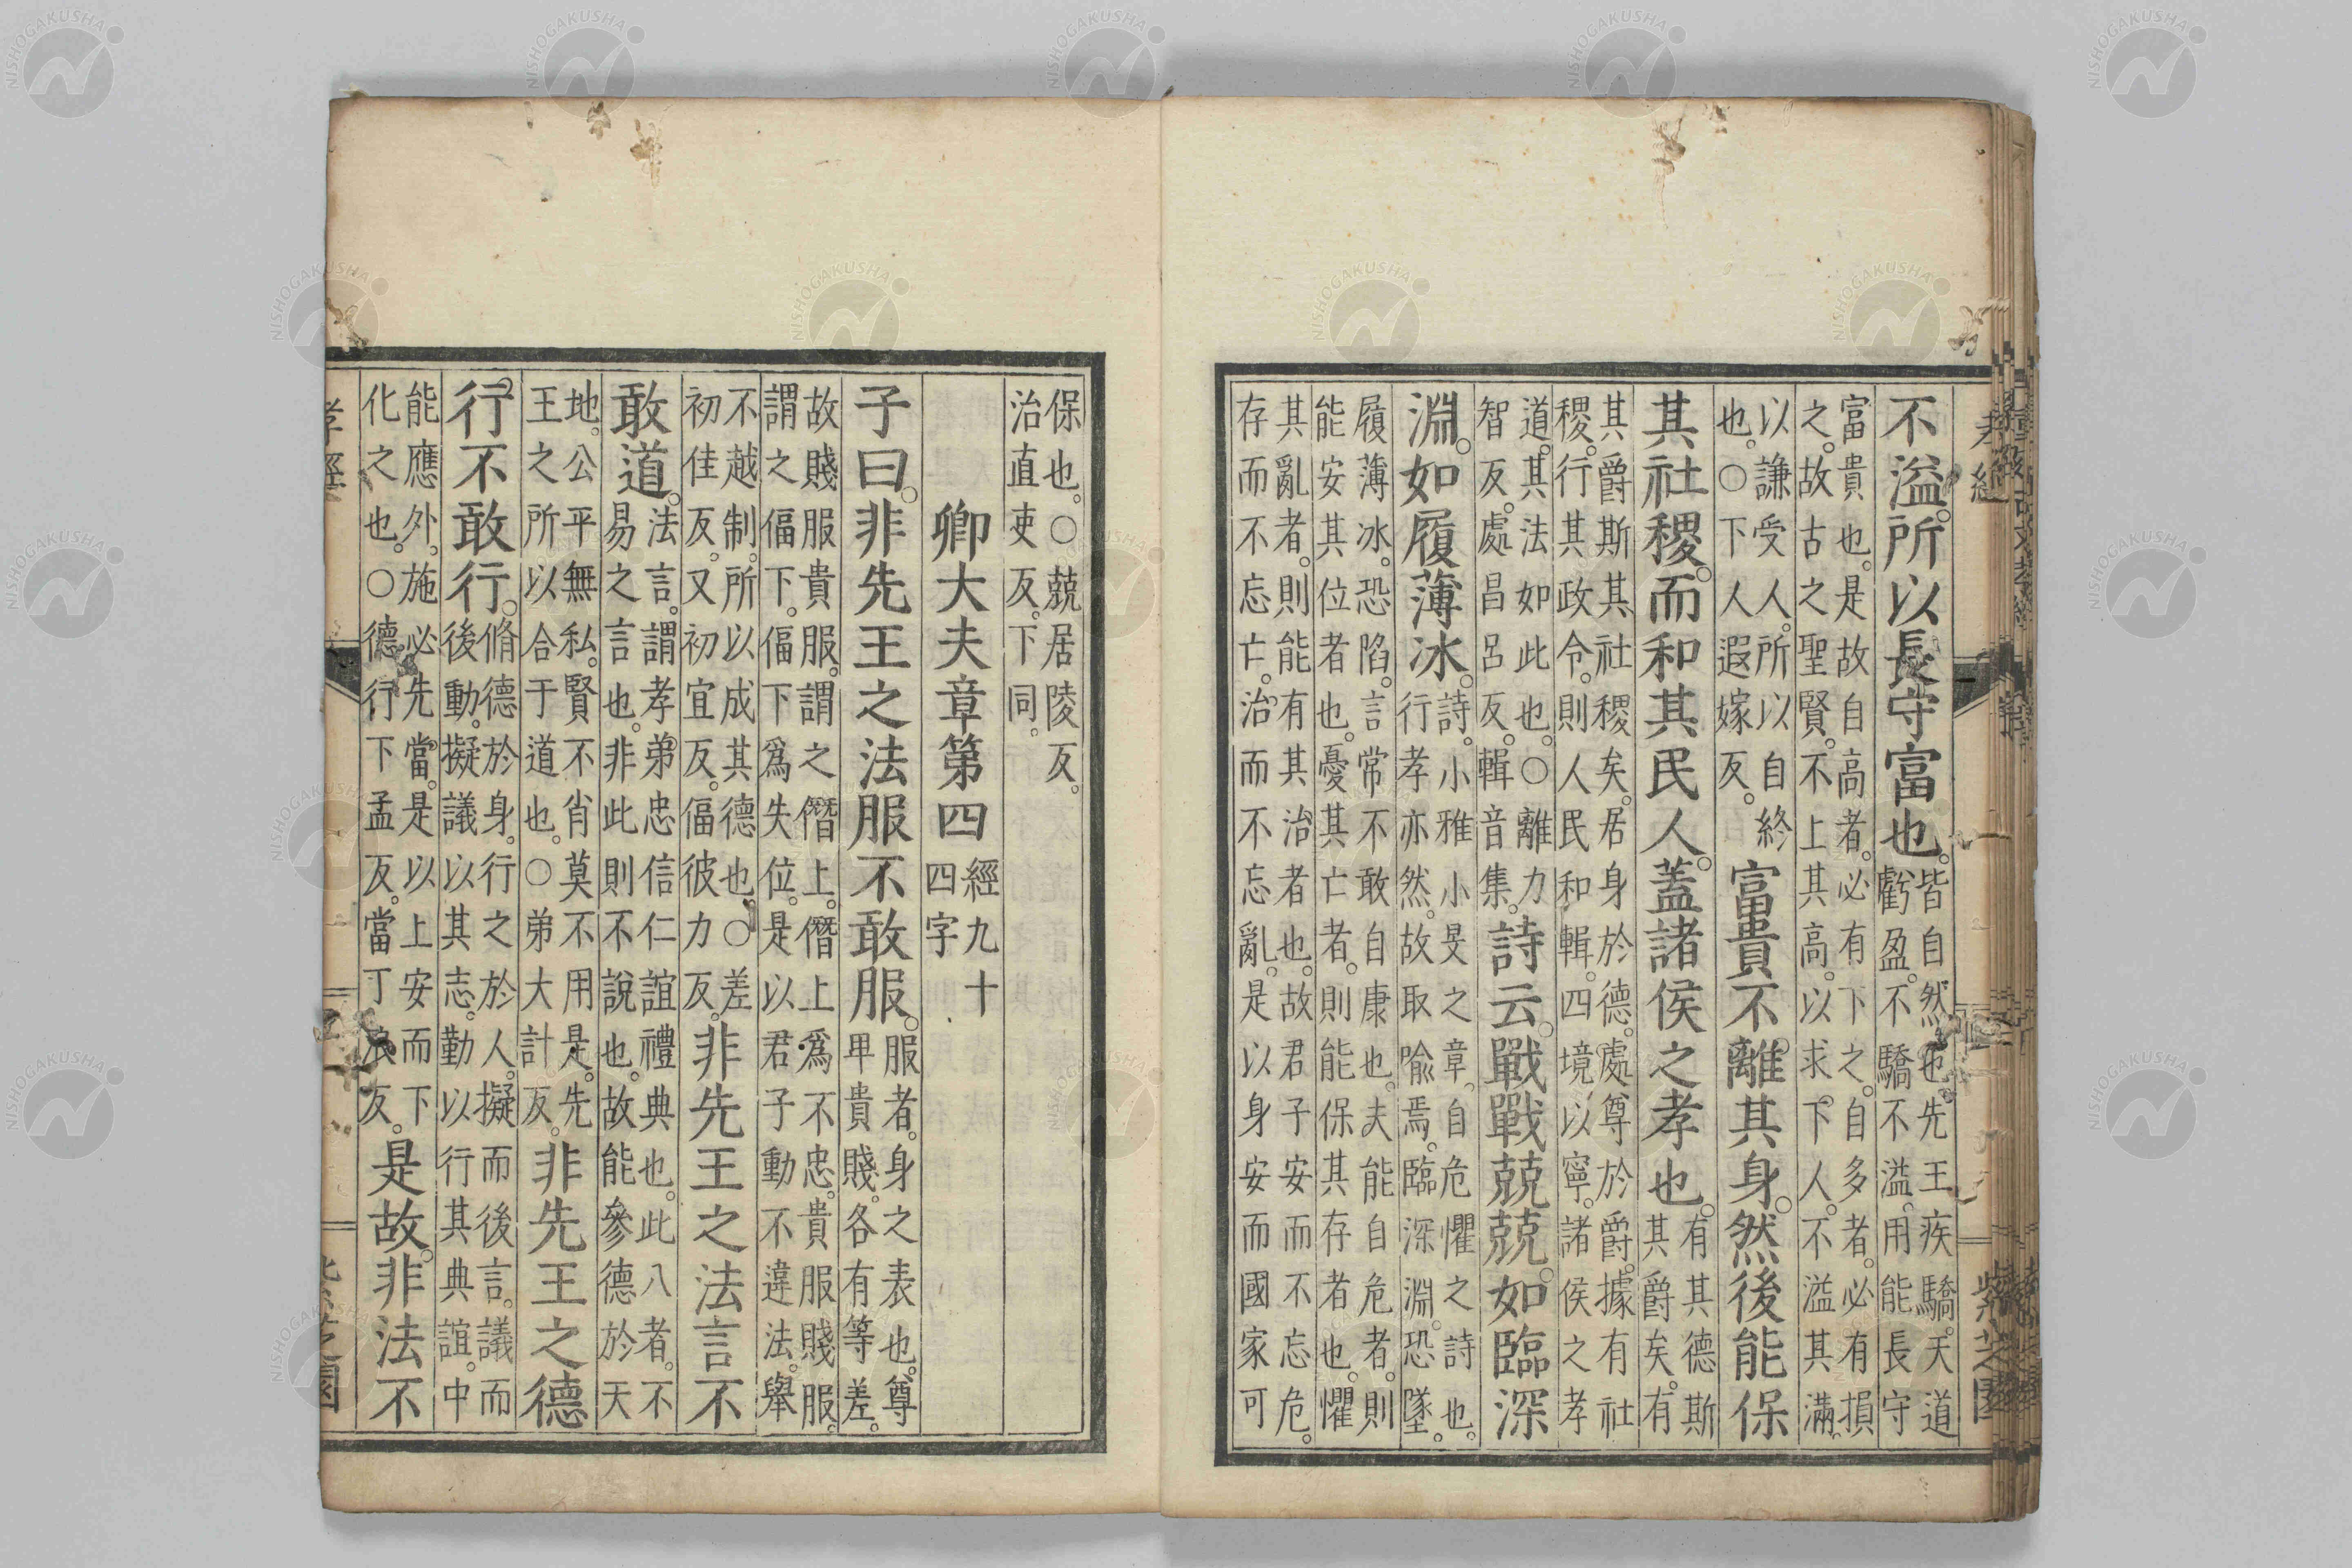 不溢。所以長守富也。皆自然也。先王疾驕。天道虧盈。不驕不溢。用能長守
富貴也。是故自高者。必有下之。自多者。必有損之。故古之聖賢。不上其高。以求下人。不溢其滿。
以謙受人。所以自終也。○下人遐嫁反。富貴不離其身。然後能保
其社稷。而和其民人。蓋諸侯之孝也。有其德斯其爵矣。有
其爵斯其社稷矣。居身於德。處尊於爵。據有社稷。行其政令。則人民和輯。四境以寧。諸侯之孝
道。其法如此也。○離力智反。處昌呂反。輯音集。詩云。戰戰兢兢。如臨深
淵。如履薄冰。詩。小雅小旻之章。自危懼之詩也。行孝亦然。故取喩焉。臨深淵。恐墜。
履薄冰。恐陷。言常不敢自康也。夫能自危者。則能安其位者也。憂其亡者。則能保其存者也。懼
其亂者。則能有其治者也。故君子安而不忘危。存而不忘亡。治而不忘亂。是以身安而國家可
保也。○兢居陵反。治直吏反。下同。
卿大夫章第四 經九十四字
子曰。非先王之法服不敢服。服者。身之表也。尊卑貴賤。各有等差。
故賤服貴服。謂之僭上。僭上爲不忠。貴服賤服。謂之偪下。偪下爲失位。是以君子動不違法。舉
不越制。所以成其德也。○差初佳反。又初宜反。偪彼力反。非先王之法言不
敢道。法言。謂孝弟忠信仁誼禮典也。此八者。不易之言也。非此則不說也。故能參德於天
地。公平無私。賢不肖莫不用是。先王之所以合于道也。○弟大計反。非先王之德
行不敢行。脩德於身。行之於人。擬而後言。議而後動。擬議以其志。動以行其典誼。中
能應外。施必先當。是以上安而下化之也。○德行下孟反。當丁浪反。是故。非法不
孝經
紫芝園
NISHOGAKUSHA